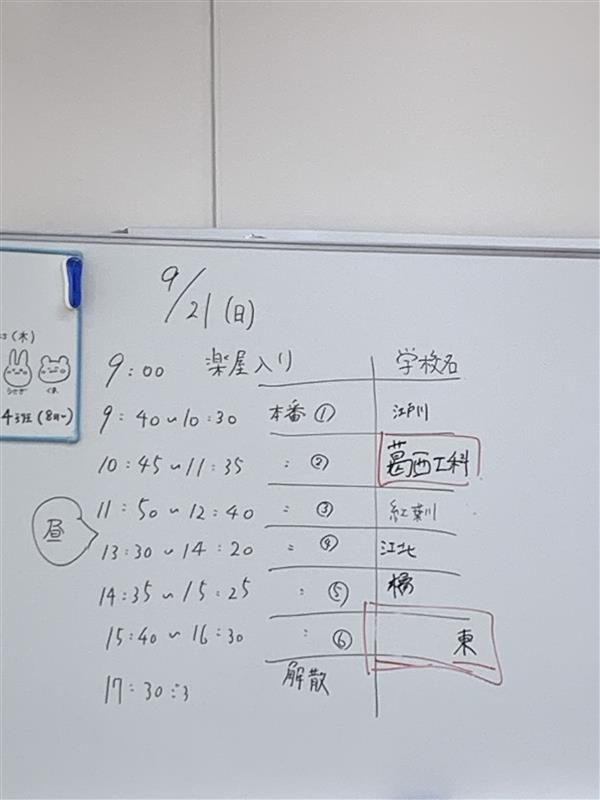 9/21(日)
9:00 楽屋入り 学校名
9:40～10:30 本番① 江戸川
10:45～11:35 〃② 葛西工科
11:50～12:40 〃③ 紅葉川
昼
13:30～14:20 〃④ 江北
14:35～15:25 〃⑤ 橘
15:40～16:30 〃⑥ 東
17:30 解散
(木)
うさぎ くま